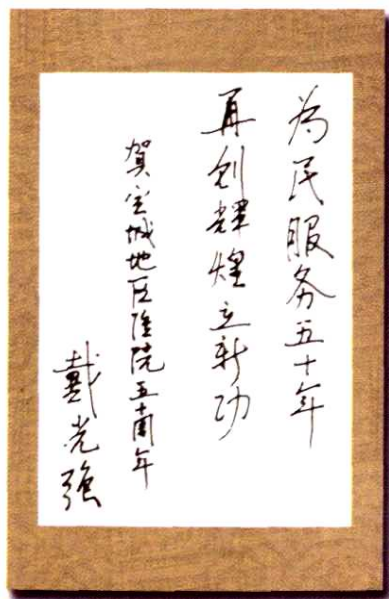 為民服务五十年
再创輝煌立新功
賀宣城地区医院五十周年
戴光强